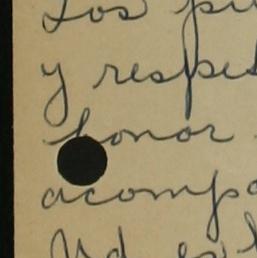 Los pu
y respe
honor
acompa
Ud es